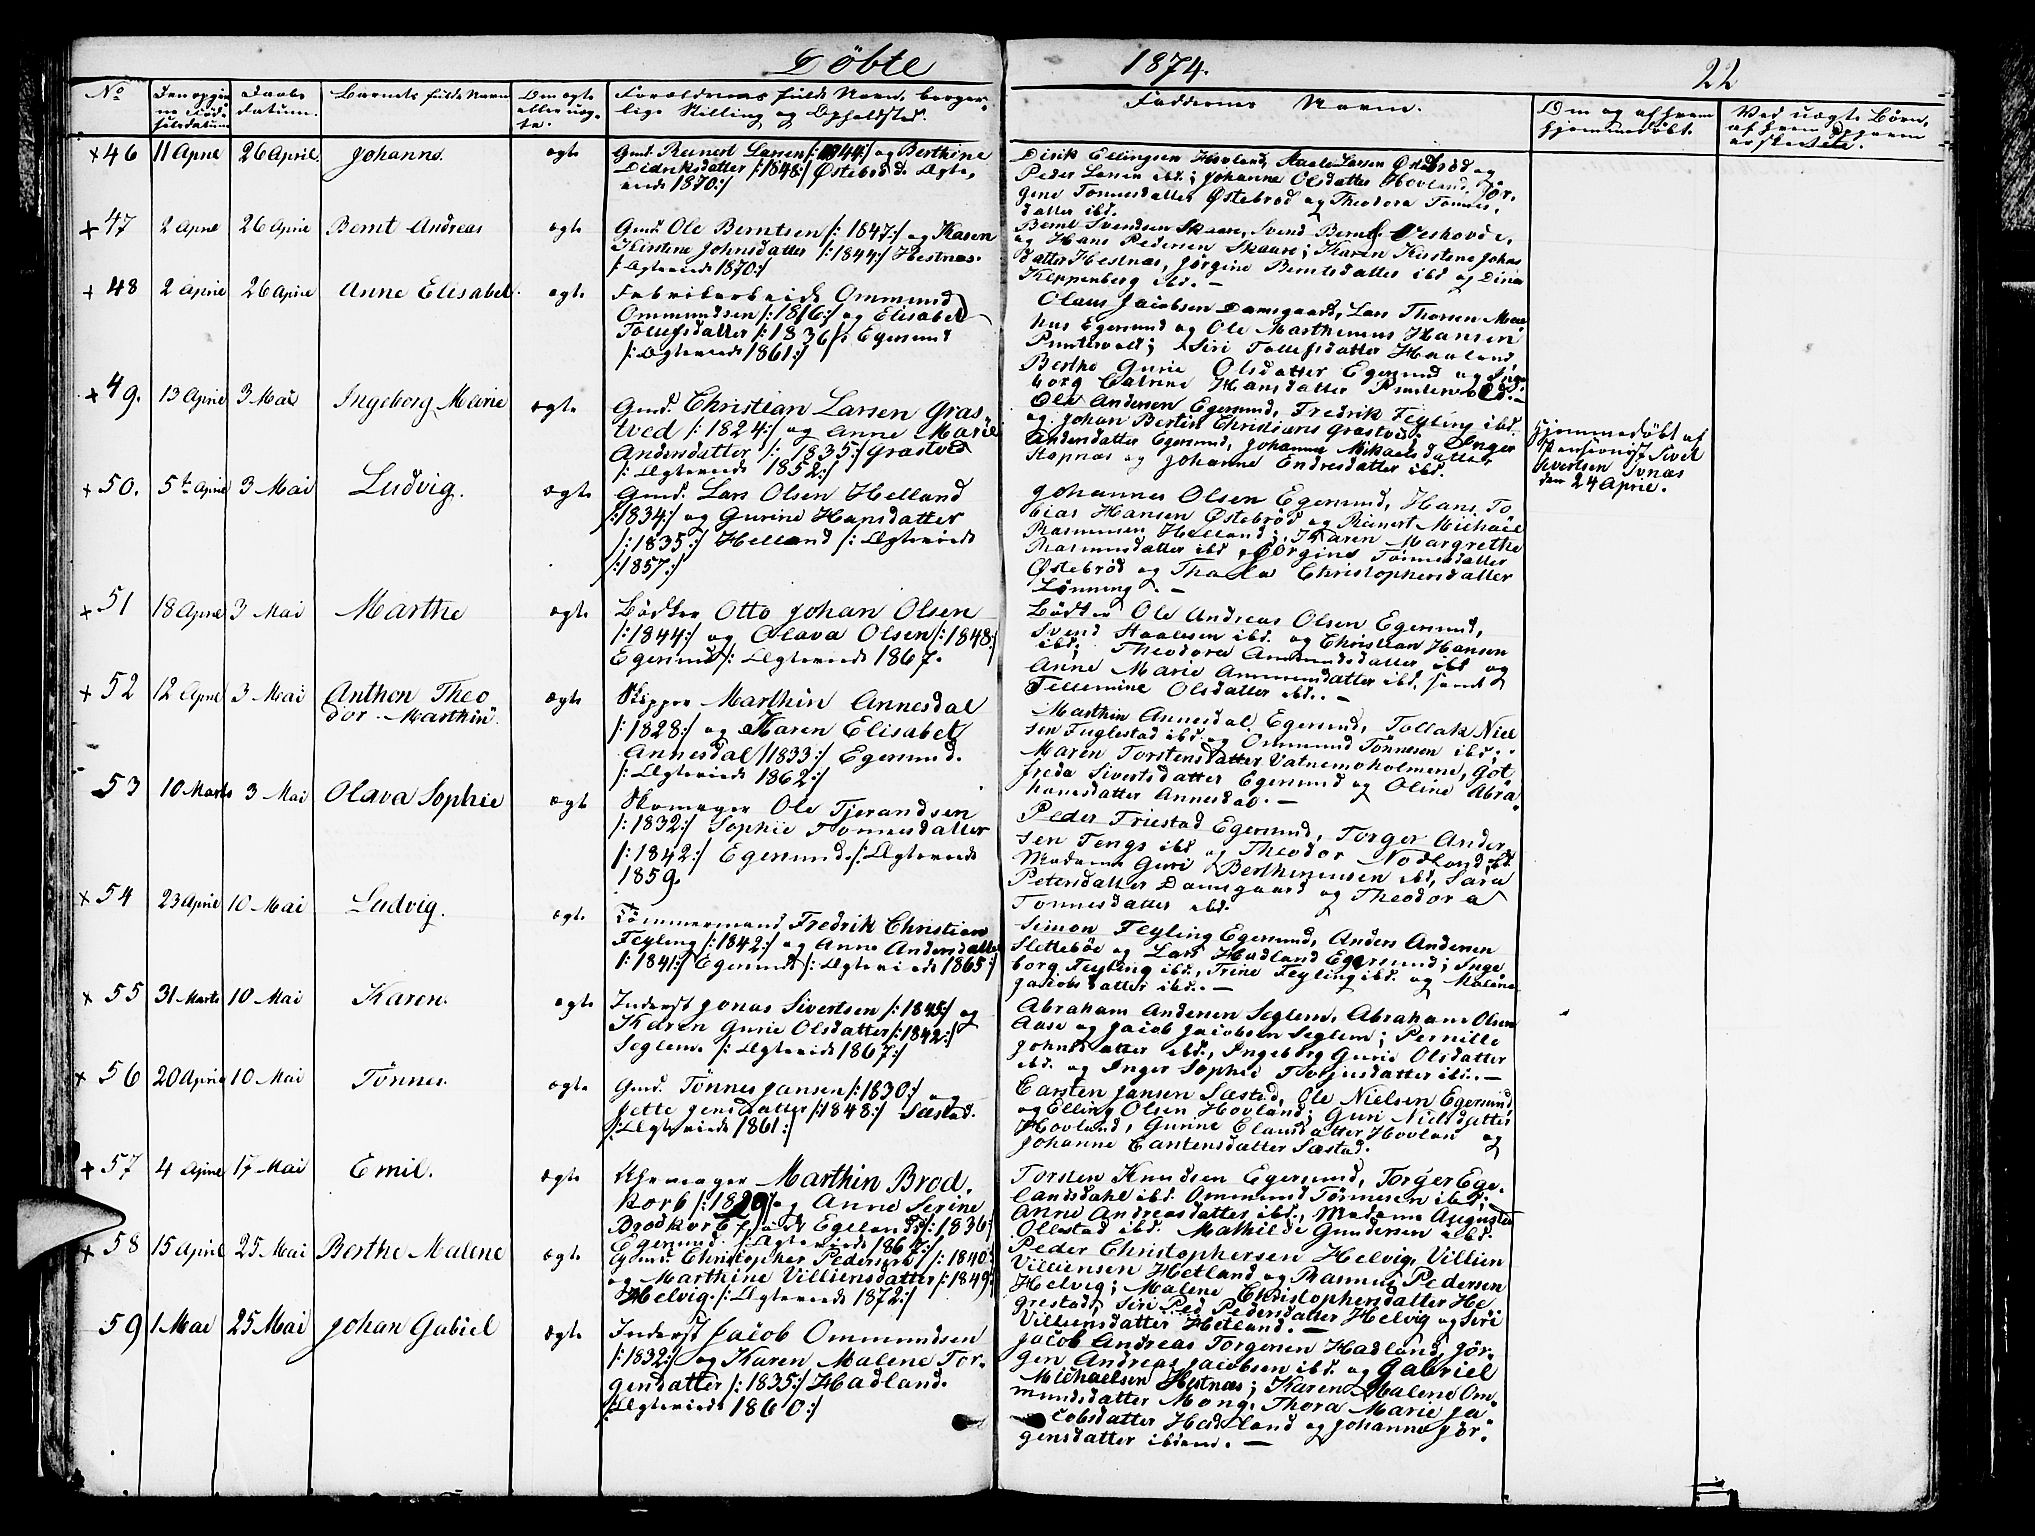 Døbte 1874. 22
No
datum.
Barnets fulde Navn
Om ægte
eller uæg-
te.
Forældrenes fulde Navn, borger-
lige Stilling og Opholdsted.
Faddernes Navn.
Om og af hvem
hjemmedøbt.
Ved uægte Børn,
af hvem Opgaven
+ 46 11 April 26 April. Johanne. ægte
Gmd. Reinert Larsen /:1844:/ og Berthine
Didriksdatter /:1848:/ Østebrød. Ægte,
viede 1870:/
Peder Larsen ibd; Johanne Olsdatter Hovland, Jör-
gine Tönnesdatter Østebrød og Theodora Tönnes-
datter ibd.
+ 47 2 April 26 April Bernt Andreas ægte
Gmd. Ole Berntsen /:1847:/ og Karen
Kirstine Johnsdatter /:1844:/ Hestnæs.
/:Ægteviede 1870:/
Bernt Svendsen Skaare, Svend Bernts. Veshovde,
og Hans Pedersen Skaare; Karen Kirstine Johns
datter Hestnæs, Jørgine Berntsdatter ibd og Dina
Keppenberg ibd. —
+ 48 2 April 26 April Anne Elisabet. ægte
Fabrikarbeider Ommund
Ommundsen /:1816:/ og Elisabet
Tollefsdatter /:1836/: Egersund
/:Ægteviede 1861:/
Olaus Jacobsen Damsgaard, Lars Thorsen
hus Egersund og Ole Marthinius Hansen
Puntervold; Siri Tollefsdatter Haaland
Berthe Gurie Olsdatter Egersund og Inge
borg Catrine Hansdatter Puntervold. —
+ 49. 13 April 3 Mai Ingeborg Marie ægte
Gmd. Christian Larsen Gras-
tved /:1824:/ og Anne Marie
Andersdatter /:1835:/ Grastvd
/:Ægteviede 1852:/
Ole Andersen Egersund, Fredrik Feyling ibd.
og Johan Bertin Christians Grastvd; Inger
Andersdatter Egersund, Johanne Mikaelsdatter
Stapnæs og Johanne Endresdatter ibd.
Hjemmedøbt af
Pensionist Sivert
Sivertsen
den 24 April.
+ 50. 5te April 3 Mai Ludvig. ægte
Gmd. Lars Olsen Helland
/:1834:/ og Gurine Hansdatter
/:1835:/ Helland /:Ægteviede
/:1857:/
Johannes Olsen Egersund, Hans To
bias Hansen Østebrød og Reinert Michael
Rasmussen Helland; Karen Margrethe
Rasmusdatter ibd, Jörgine Tönnesdatter
Østebrød og Thala Christophersdatter
Lönning. —
+ 51 18 April 3 Mai Marthe ægte
Bödker Otto Johan Olsen
/:1844:/ og Olava Olsen /:1848:/
Egersund /:Ægteviede 1867.
Bödker Ole Andreas Olsen Egersund,
Svend Staalesen ibd. og Christian Hansen
ibd; Theodora Ammundsdatter ibd og
Anne Marie Ammundsdatter ibd. samt
Tellemine Olsdatter ibd. —
+ 52 12 April 3 Mai Anthon Theo
dor Marthin. ægte
Skipper Marthin Annesdal
/:1828:/ og Karen Elisabet
Annesdal /1833:/ Egersund.
/:Ægteviede 1862:/
Marthin Annesdal Egersund, Tollak Niel
sen Fuglestad ibd. og Ommund Tönnesen ibd;
Maren Torstensdatter Vatnemoholmene, Got
freda Sivertsdatter Egersund og Oline Abra-
hamsdatter Annesdal. —
53 10 Marts 3 Mai Olava Sophie ægte
Skomager Ole Tjerandsen
/:1832:/ Sophie Tönnesdatter
/:1842:/ Egersund. /:Ægteviede
1859.
Peder Friestad Egersund, Torger Ander
sen Tengs ibd og Theodor Nodland ibd.
Madame Guri Berthinussen ibd, Sara
Petersdatter Damsgaard og Theodora
Tönnesdatter ibd.
+ 54 23 April 10 Mai Ludvig. ægte
Tømmermand Fredrik Christian
Feyling /:1842:/ og Anne Andersdatter
/:1841:/ Egersund /:Ægteviede 1865:/
Simon Feyling Egersund, Anders Andersen
Slettebøe og Lars Hadland Egersund; Inge
borg Feyling ibd., Trine Feyling ibd. og Malene
Jacobsdatter ibd. —
+ 55 31 Marts 10 Mai Karen. ægte
Inderst Jonas Sivertsen /:1845:/ og
Karen Gurie Olsdatter /:1842:/
Seglem. /:Ægteviede 1867:/
Abraham Andersen Seglem, Abraham Olsen
Aase og Jacob Jacobsen Seglem; Pernille
Johnsdatter ibd., Ingeborg Gurie Olsdatter
ibd. og Inger Sophie Torjusdatter ibd. —
+ 56 20 April 10 Mai Tönnes. ægte
Gmd. Tönnes Jansen /:1830:/ og
Jette Jensdatter /:1848:/ Sæstad.
/:Ægteviede 1861:/
Carsten Jansen Sæstad, Ole Nielsen Egersund
og Elling Olsen Hovland; Guri Nielsdatter
Hovland, Gunne Elausdatter Hovlan og
Johanne Carstensdatter Sæstad.
+ 57 4 April 17 Mai Emil. ægte
Skomager Marthin Brod.
korb /:1829/ og Anne Serine
Brodkorb født Egelands /:1836/
Egersund. /:Ægteviede 1867:/
Torsten Knudsen Egersund, Torger Ege-
landsdahl ibd. Ommund Tönnesen ibd;
Anne Andreasdatter ibd., Madame Augusta
Ollestad ibd. Mathilde Gundersen ibd.
+ 58 15 April 25 Mai Berthe Malene ægte
Gmd. Christopher Pedersen /:1840:/
og Marthine Villiensdatter /:1849:/
Helvig. /:Ægteviede 1872:/
Peder Christophersen Helvig, Villien
Villiensen Hetland og Rasmus Pedersen
Helvig; Malene Christophersdatter He
grestad, Siri Ped Pedersdatter Helvig og Siri
Villiensdatter Hetland. —
59 1 Mai 25 Mai Johan Gabriel ægte
Inderst Jacob Ommundsen
/:1832:/ og Karen Malene Tor-
gersdatter /:1835:/ Hadland.
/:Ægteviede 1860:/
Jacob Andreas Torgersen Hadland, Jör-
gen Andreas Jacobsen ibd. og Gabriel
Michaelsen Hestnæs; Karen Malene Om-
mundsdatter Mong, Thora Marie Ja-
cobsdatter Hadland og Johanne Jör-
gensdatter ibidem. —